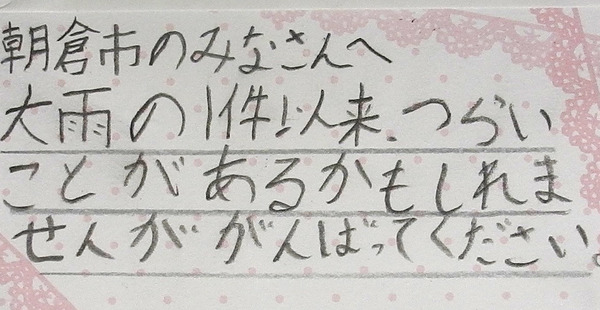 朝倉市のみなさんへ
大雨の1件以来、つらい
ことがあるかもしれま
せんががんばってください。